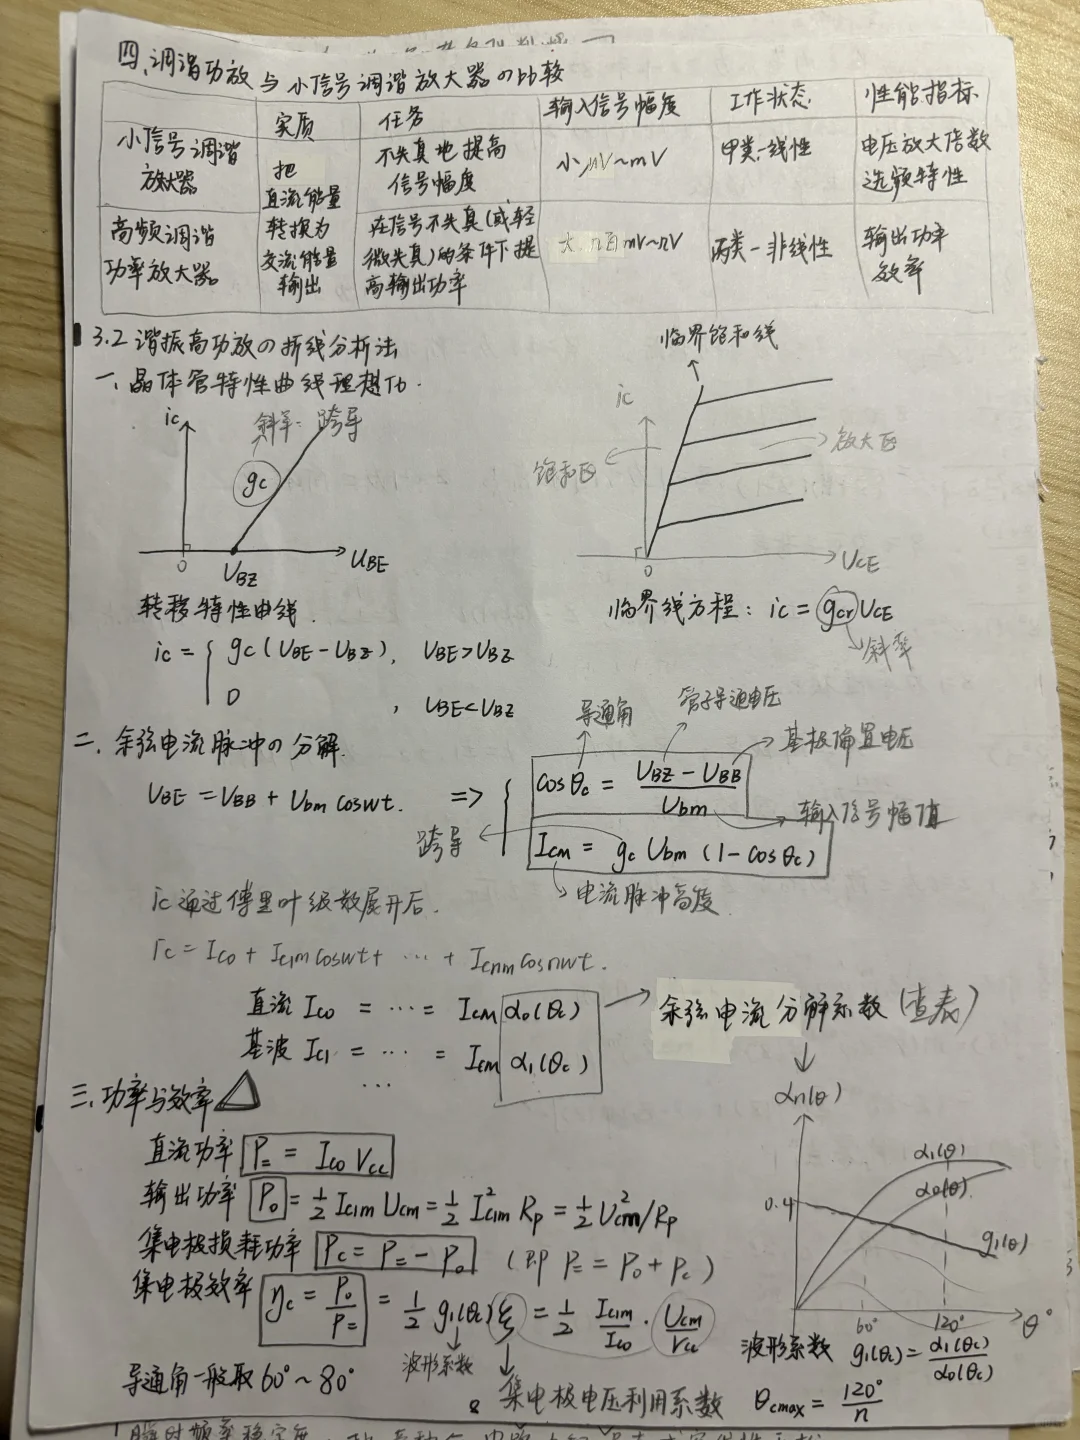 四、调谐功放与小信号调谐放大器の比较
实质 任务 输入信号幅度 工作状态 性能指标
小信号调谐放大器
把直流能量转换为交流能量输出
不失真地提高信号幅度
小 μV~mV
甲类-线性
电压放大倍数
选频特性
高频调谐功率放大器
在信号不失真(或轻微失真)的条件下提高输出功率
大 几百mV~nV
丙类-非线性
输出功率
效率
3.2 谐振高功放の折线分析法
一、晶体管特性曲线理想化.
ic
斜率:跨导
gc
0
UBZ
UBE
转移特性曲线.
ic = { gc(UBE-UBZ), UBE>UBZ
0 , UBE<UBZ
临界饱和线
ic
饱和区
放大区
0
UCE
临界线方程: ic = gcr UCE
斜率
二、余弦电流脉冲の分解.
UBE = UBB + Ubm cosωt. =>
导通角
管子导通电压
基极偏置电压
cosθc = (UBZ - UBB)/Ubm
输入信号幅值
跨导
Icm = gc Ubm (1-cosθc)
电流脉冲高度
ic通过傅里叶级数展开后.
ic = Ico + Ic1m cosωt + … + Icnm cosnωt.
直流 Ico = … = Icm α0(θc)
余弦电流分解系数(查表)
基波 Ic1 = … = Icm α1(θc)
…
三、功率与效率
直流功率 P= = Ico Vcc
输出功率 Po = ½ Ic1m Ucm = ½ I²c1m Rp = ½ U²cm/Rp
集电极损耗功率 Pc = P= - Po (即 P= = Po + Pc)
集电极效率 ηc = Po/P= = ½ g1(θc) ξ = ½ Ic1m/Ico · Ucm/Vcc
波形系数
集电极电压利用系数
导通角一般取60°~80°
αn(θ)
α1(θ)
α0(θ)
0.4
g1(θ)
60°
120°
θ°
波形系数 g1(θc) = α1(θc)/α0(θc)
θcmax = 120°/n